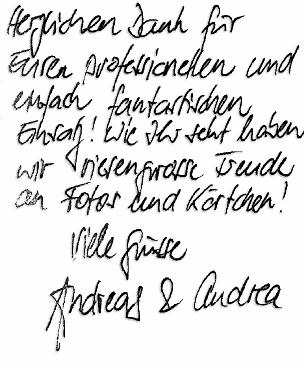 Herzlichen Dank für
Euren professionellen und
einfach fantastischen
Einsatz! Wie Ihr seht haben
wir riesengrosse Freude
an Fotos und Kärtchen!
Viele Grüsse
Andreas & Andrea